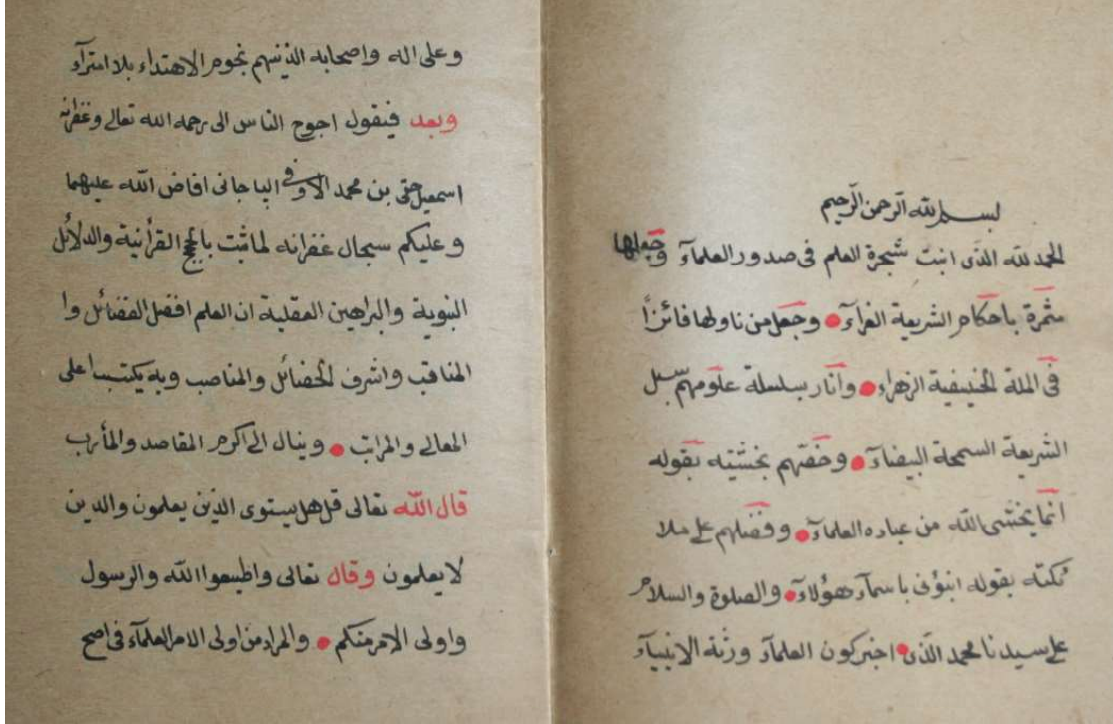 بسم الله الرحمن الرحيم
الحمد لله الذى انبت شجرة العلم فى صدور العلمآء وجعلها
مثمرة باحكام الشريعة الغرآء وجعل من ناولها فائزاً
فى الملة الحنيفية الزهراء وانار بسلسلة علومهم سبل
الشريعة السمحة البيضآء وخصّهم بخشيته بقوله
انما يخشى الله من عباده العلمآء وفضلهم على ملا
ئكته بقوله انبؤنى باسمآء هؤلاء والصلوة والسلام
على سيدنا محمد الذى اخبر كون العلمآء ورثة الانبيآء
وعلى اله واصحابه الذينهم نجوم الاهتداء بلا امترآء
وبعد فيقول احوج الناس الى رحمه الله تعالى وغفرانه
اسمعيل حقى بن محمد الاوفى الياجانى افاض الله عليهما
وعليكم سجال غفرانه لما ثبت بالحجج القرأنية والدلائل
النبوية والبراهين العقلية ان العلم افضل الفضائل وا
المناقب واشرف الخصائل والمناصب وبه يكتسب اعلى
المعالى والمراتب وينال الى اكرم المقاصد والمأرب
قال الله تعالى قل هل يستوى الذين يعلمون والدين
لا يعلمون وقال تعالى واطيعوا الله والرسول
واولى الامر منكم والمراد من اولى الامر العلمآء فى اصح